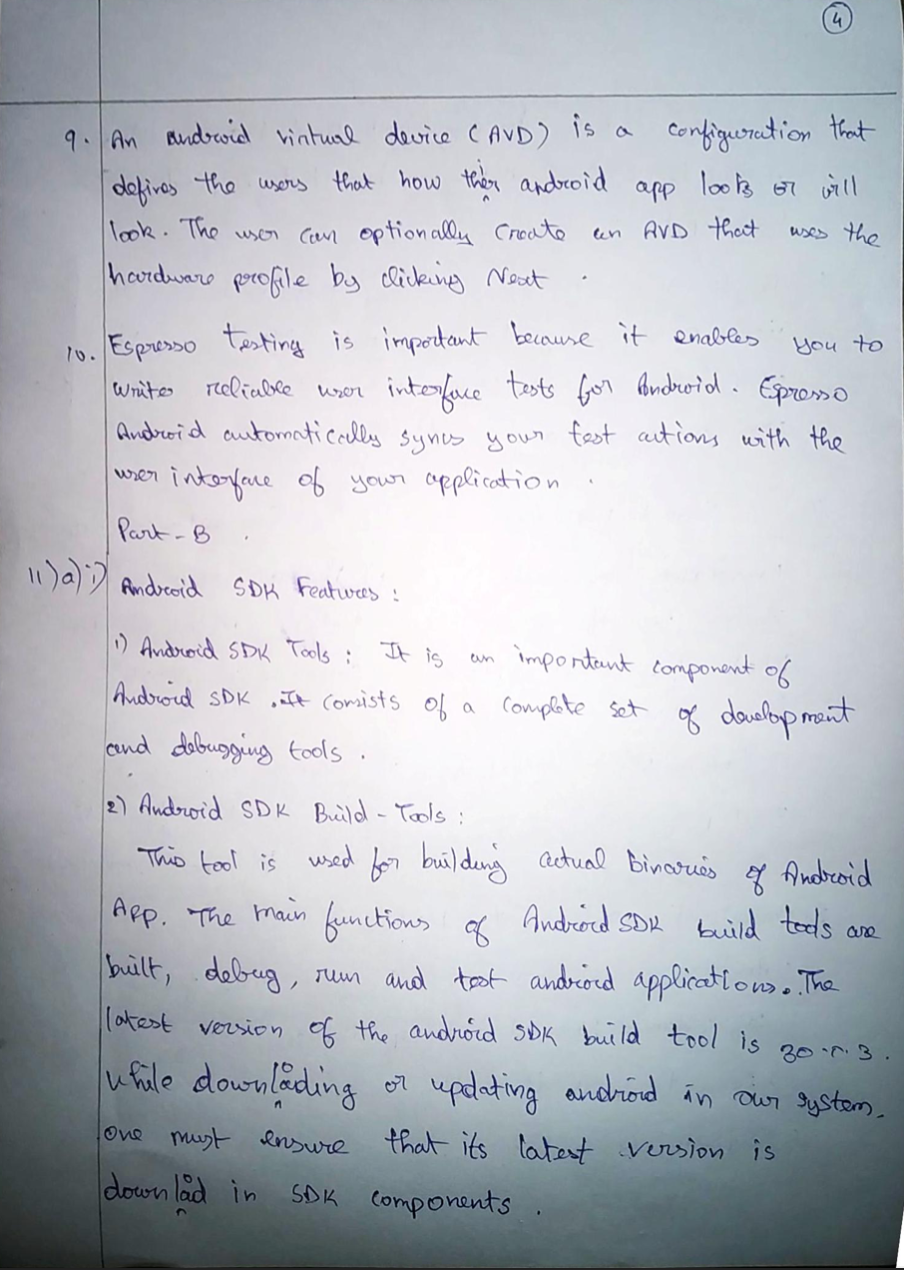 4
9. An android virtual device (AVD) is a configuration that
defines the users that how their android app looks or will
look. The user can optionally Create an AVD that uses the
hardware profile by clicking Next.
10. Espresso testing is important because it enables you to
write reliable user interface tests for Android. Espresso
Android automatically syncs your test actions with the
user interface of your application.
Part-B.
11)a)i) Android SDK Features:
1) Android SDK Tools: It is an important component of
Android SDK. It consists of a complete set of development
and debugging tools.
2) Android SDK Build-Tools:
This tool is used for building actual binaries of Android
App. The main functions of Android SDK build tools are
built, debug, run and test android applications. The
latest version of the android SDK build tool is 30.0.3.
While downloading or updating android in our system,
one must ensure that its latest version is
download in SDK components.